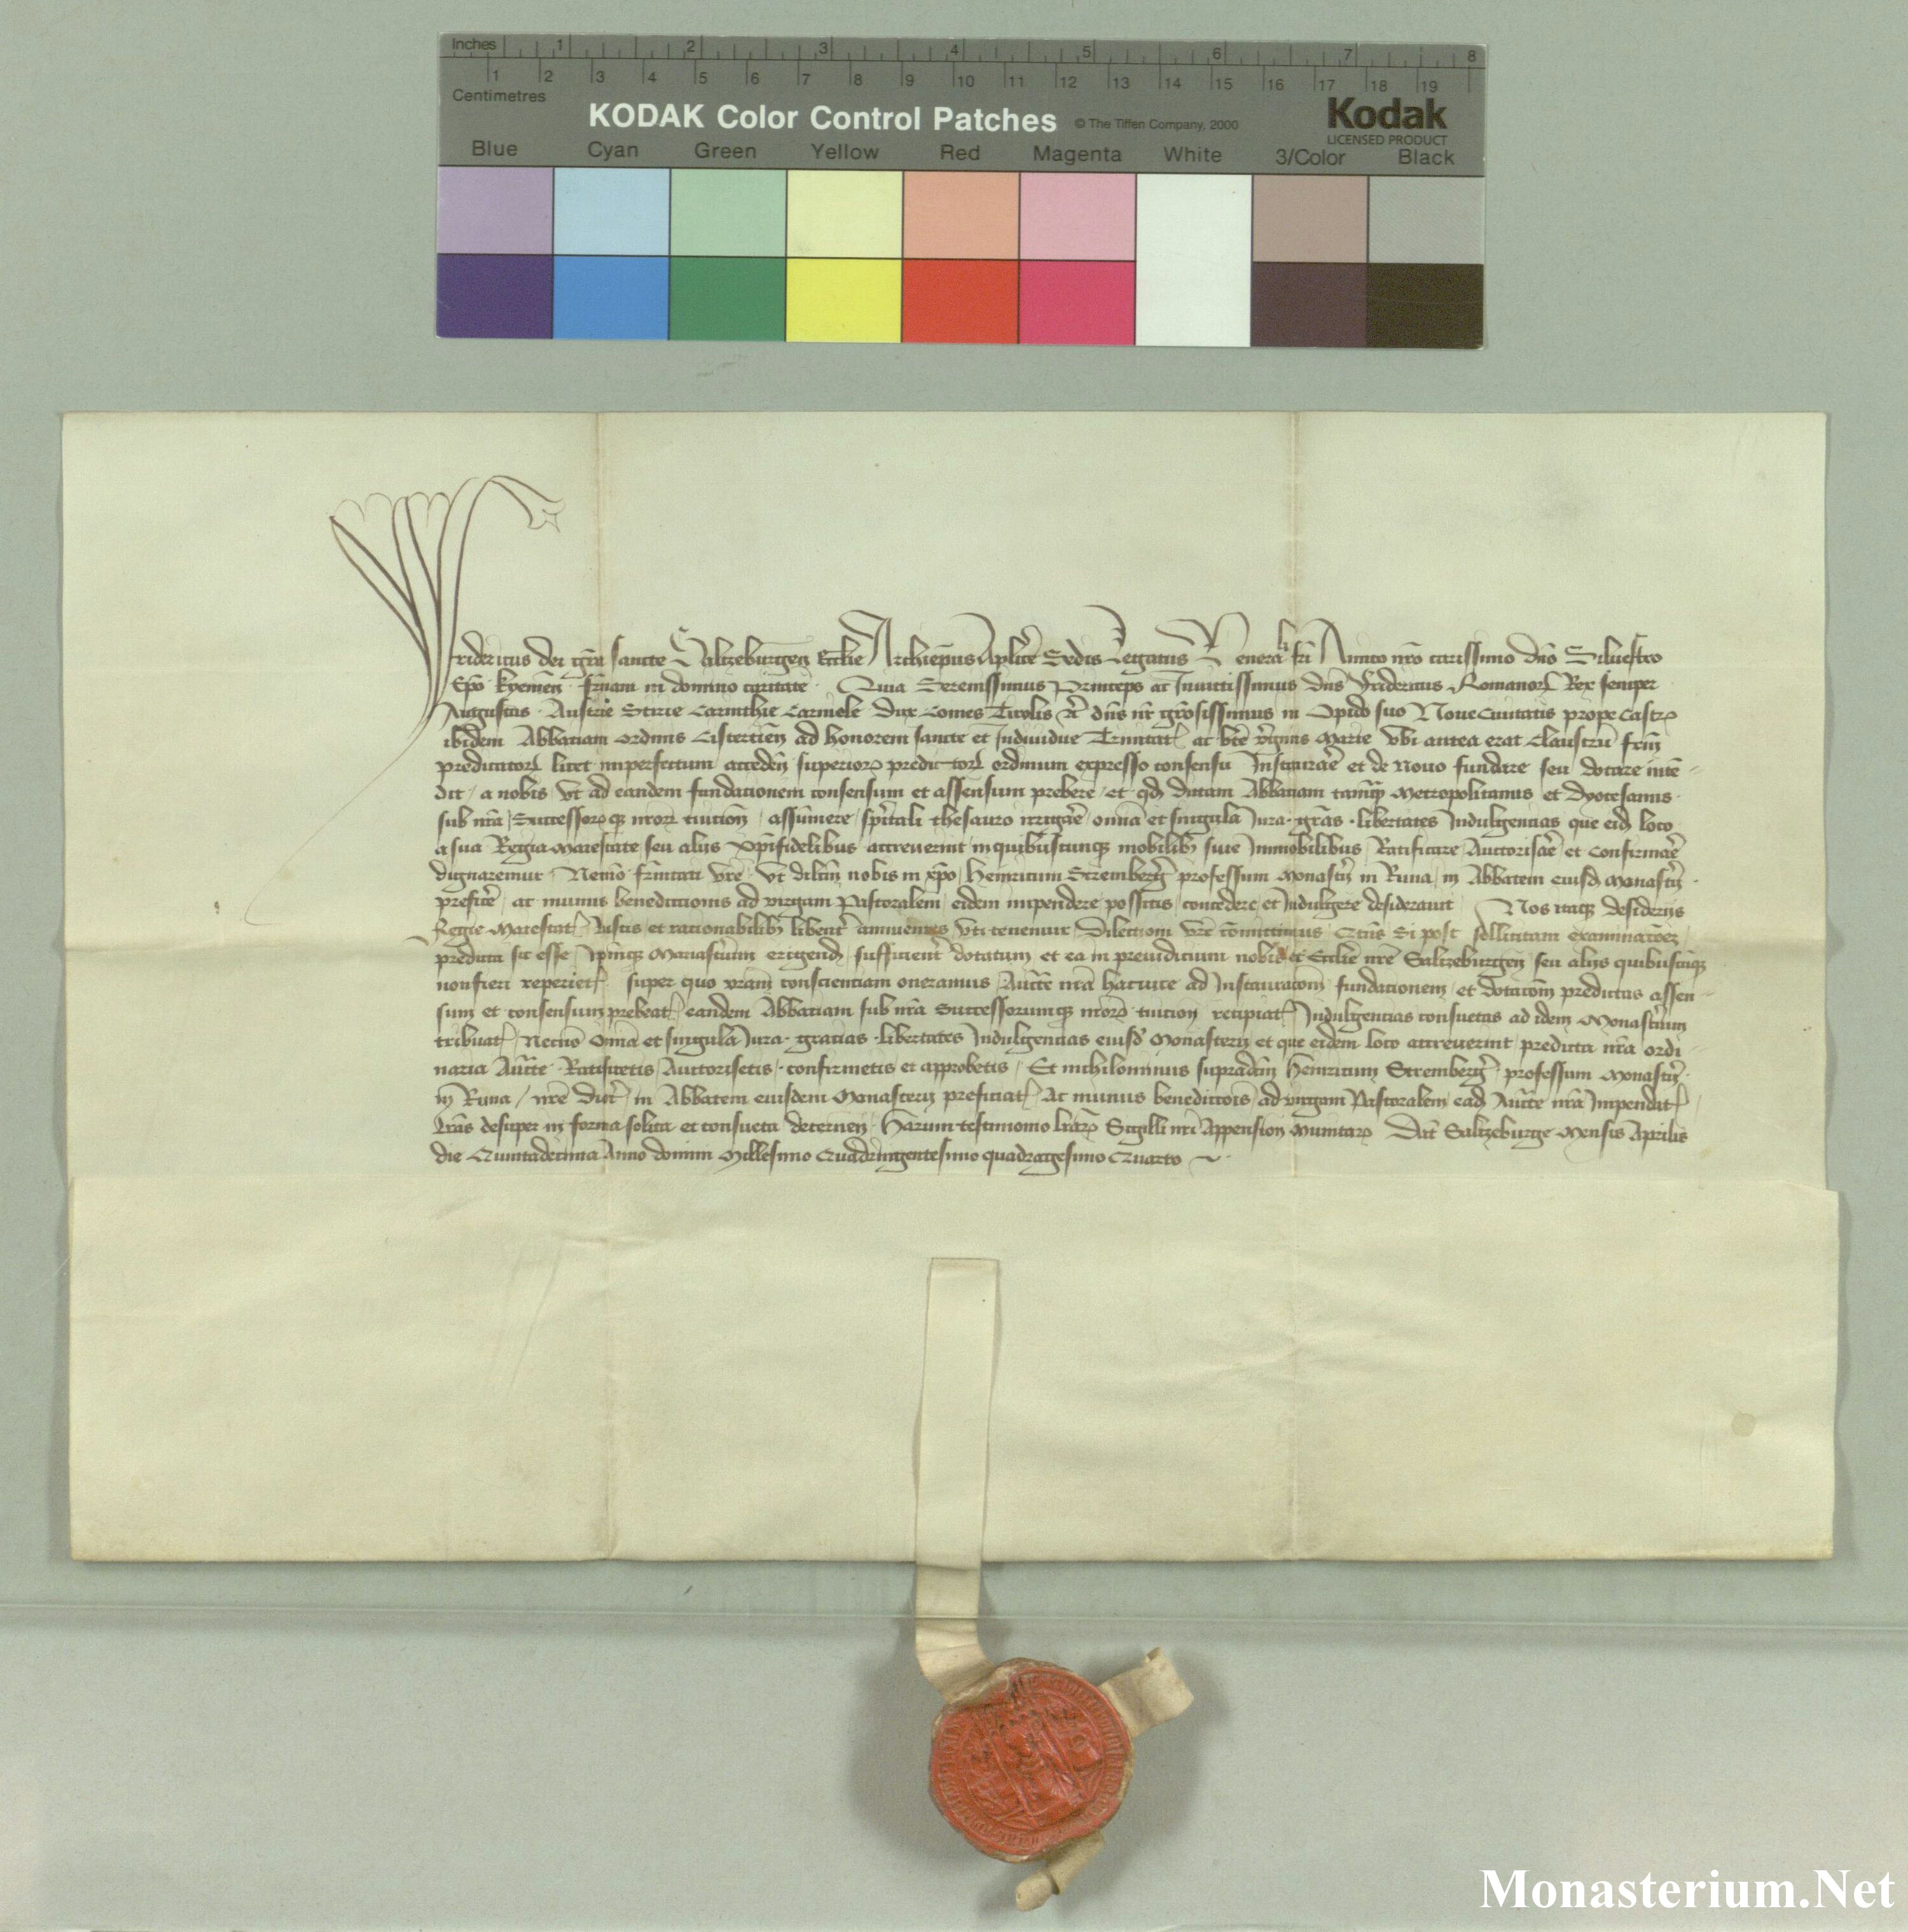 Inches 1 2 3 4 5 6 7 8
1 2 3 4 5 6 7 8 9 10 11 12 13 14 15 16 17 18 19
Centimetres
KODAK Color Control Patches © The Tiffen Company, 2000 Kodak
LICENSED PRODUCT
Blue Cyan Green Yellow Red Magenta White 3/Color Black
Fridericus dei gra sancte Saltzeburgen Ecclie Archiepus Aplice Sedis Legatus Venerabili fri Amico nro carissimo dno Siluestro
Epo Kyemen frnam in domino caritate Quia Serenissimus Princeps ac Inuictissimus dns Fridericus Romanor Rex semper
Augustus Austrie Stirie Carinthie Carniole Dux Comes Tirolis &c dns nr grosissimus in Opido suo Noue Ciuitatis prope Castr
ibidem Abbatiam ordinis Cistercien ad honorem sancte et Indiuidue Trinitat ac bte vginis Marie vbi antea erat Claustru frm
predicator licet imperfectum acceden superior predictor ordinum expresso consensu Instaurare et de nouo fundare seu dotare inten
dit a nobis vt ad eandem fundationem consensum et assensum prebere et qd dictam Abbatiam tamq Metropolitanus et dyocesanus
sub nra Successorq nror tuicion assumere spirtali thesauro irrigare omia et singula Jura gras libertates Indulgencias que eid loco
a sua Regia Maiestate seu alijs xpifidelibus accreuerint in quibuscunq mobilib siue Immobilibus Ratificare Auctorisare et confirmare
dignaremur Necno frnitati vre vt dilcm nobis in xpo Heinricum Stremberg professum Monastrij in Runa in Abbatem eiusd Monastrij
preficere ac munus benedictionis ad virgam Pastoralem eidem impendere possitis concedere et Indulgere desiderauit Nos itaq desiderijs
Regie Maiestat Justis et rationabilib libent annuentes vti tenemur Dilectioni vre comittimus Quatinus Si post sollicitam examinacoez
predicta sic esse Ipmq Monasterium erigend sufficient dotatum et ea in preiudicium nobis et Ecclie nre Saltzeburgen seu alijs quibuscuq
non fieri reperiet super quo vram conscienciam oneramus Aucte nra hac vice ad Instauracom fundationem et dotacom predictas assen
sum et consensum prebeat eandem Abbatiam sub nra Successorumq nror tuicion recipiat Indulgencias consuetas ad idem Monasterium
tribuat Necno omia et singula Jura gracias libertates Indulgencias eiusd Monasterij et que eidem loco accreuerint predicta nra ordi
naria Aucte Ratificetis Auctorisetis confirmetis et approbetis Et nichilominus supradcm Heinricum Stremberg professum Monastrij
in Runa nre dioc in Abbatem eiusdem Monasterij preficiat Ac munus benedictois ad virgam Pastoralem ead Aucte nra Impendat
Lras desuper in forma solita et consueta decernen Harum testimonio lrar Sigilli nri Appension Munitar Dat Saltzeburge Mensis Aprilis
die Quintadecima Anno domini Millesimo Quadringentesimo quadragesimo Quarto
Monasterium.Net